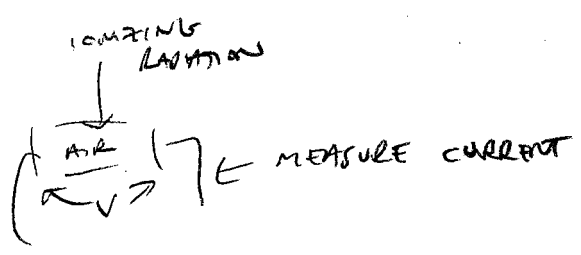 IONIZING
RADIATION
AIR
V
MEASURE CURRENT